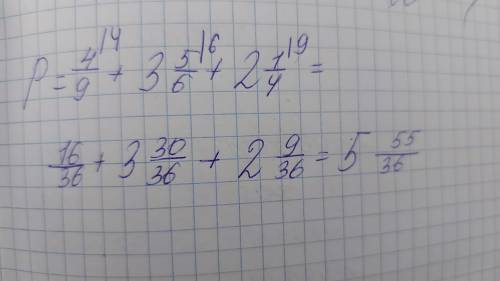 P = 4/9 |4 + 3 5/6 |6 + 2 1/4 |9 =
16/36 + 3 30/36 + 2 9/36 = 5 55/36